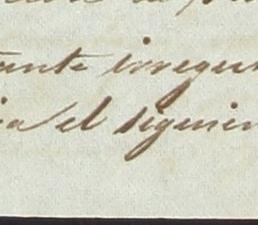 tante irregu
ia el siguien